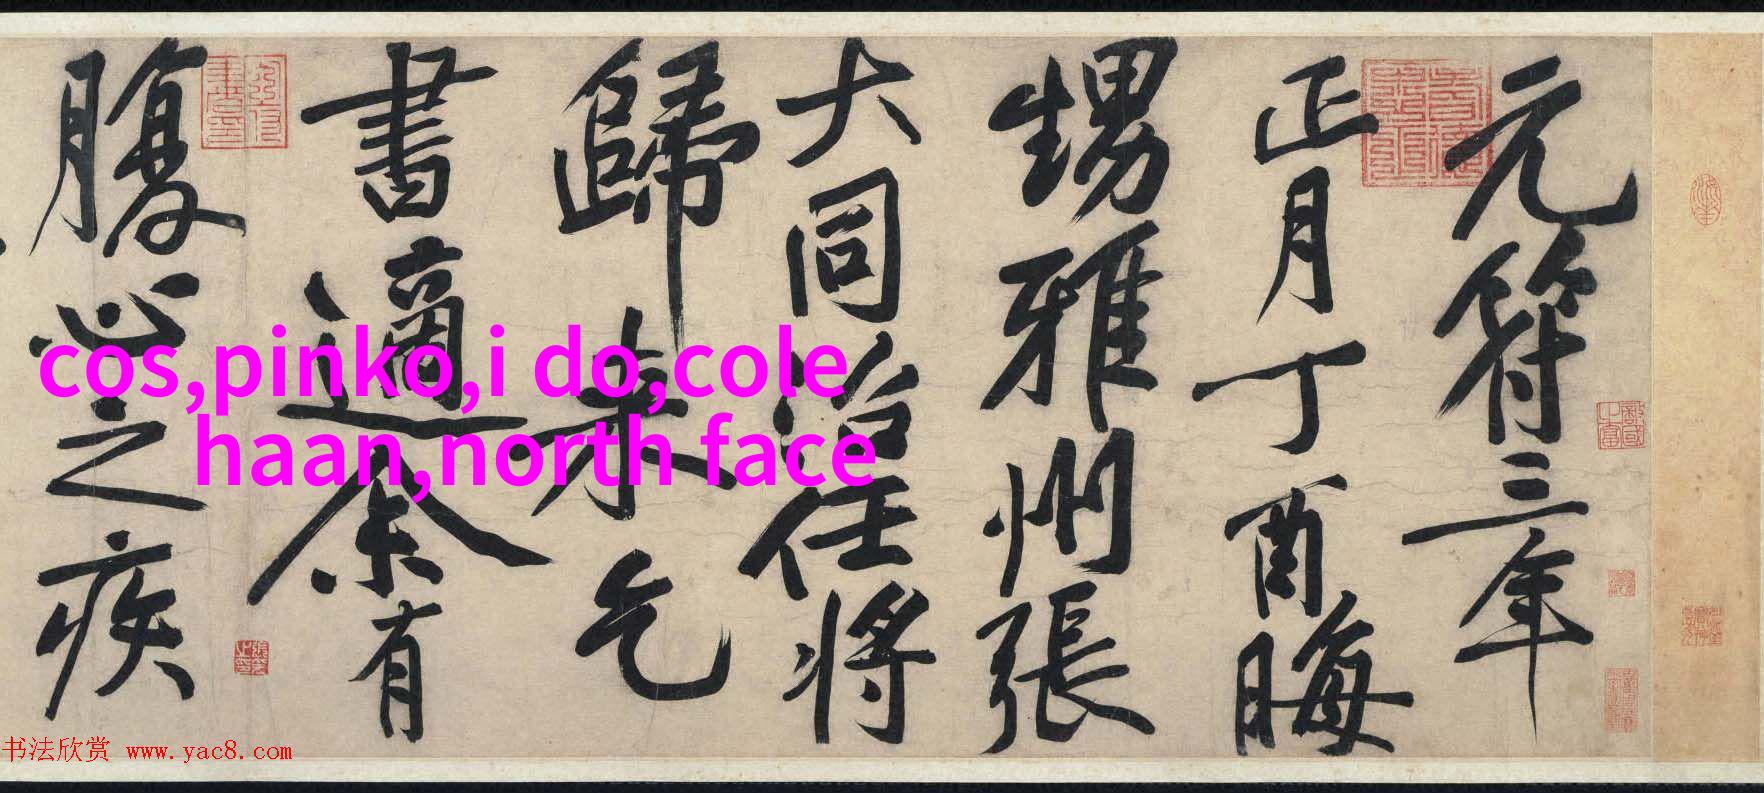 元符三年
正月丁酉晦
甥雅州張
大同治任將
歸來乞
書適余有
腹心之疾
cos,pinko,i do,cole
haan,north face
书法欣赏 www.yac8.com